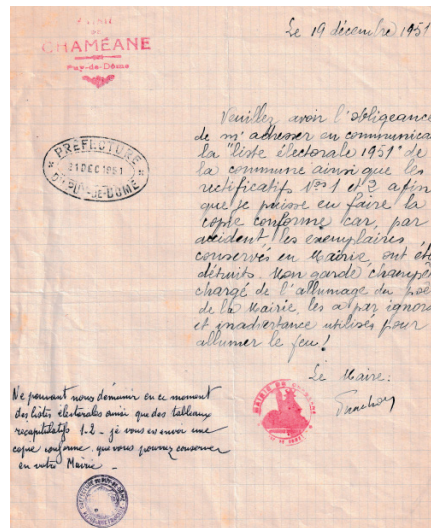 MAIRIE
DE
CHAMÉANE
Puy-de-Dôme
Le 19 décembre 1951
PRÉFECTURE
21 DEC 1951
DU PUY-DE-DOME
Veuillez avoir l'obligeance
de m'adresser en communica
la "liste électorale 1951" de
la commune ainsi que les
rectificatifs N° 1 et 2 afin
que je puisse en faire la
copie conforme car, par
accident, les exemplaires
conservés en Mairie, ont été
détruits. Mon garde champêt
chargé de l'allumage du poê
de la Mairie, les a par ignora
et inadvertance utilisés pour
allumer le feu!
Le Maire:
MAIRIE DE
Ne pouvant nous démunir en ce moment
des listes électorales ainsi que des tableaux
récapitulatifs 1-2 - je vous en envoie une
copie conforme que vous pourrez conserver
en votre Mairie -
PRÉFECTURE DU PUY-DE-DÔME